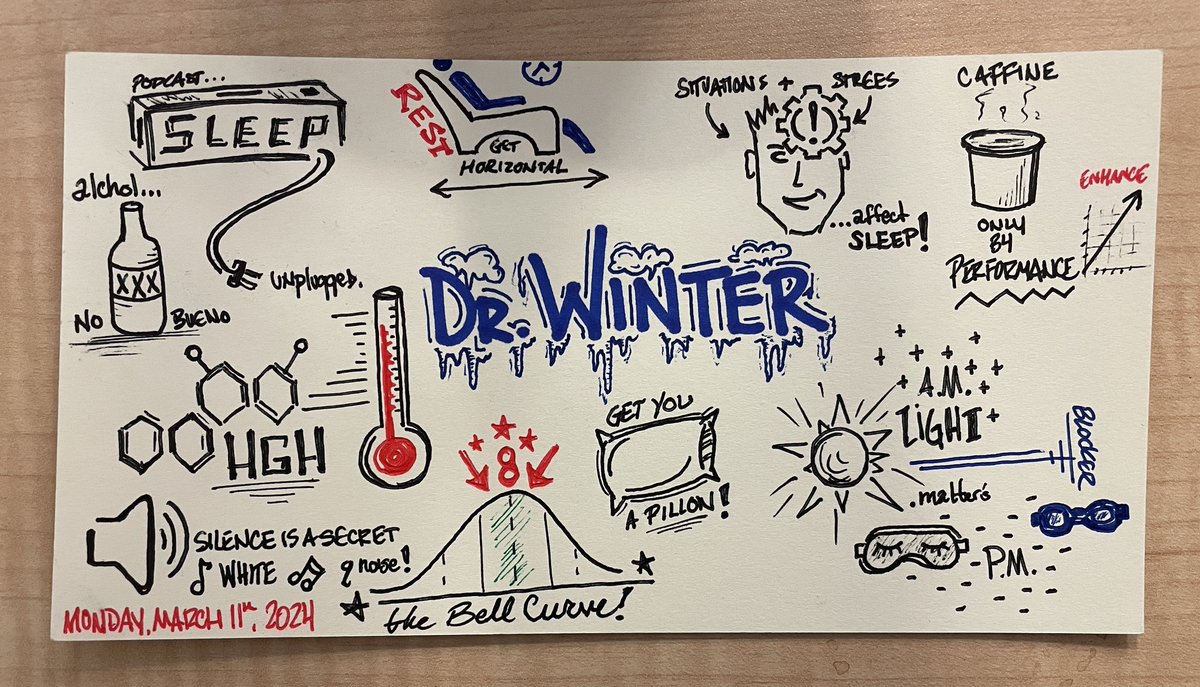 PODCAST...
SLEEP
unplugged.
alchol...
XXX
NO BUENO
REST
GET
HORIZONTAL
SITUATIONS + STREES
!
...affect
SLEEP!
CAFFINE
ONLY
B4
PERFORMANCE
ENHANCE
DR. WINTER
HGH
8
the Bell Curve!
GET YOU
A PILLON!
A.M.
LIGHT
.matters
Blocker
P.M.
SILENCE IS A SECRET
WHITE noise!
MONDAY, MARCH 11th, 2024